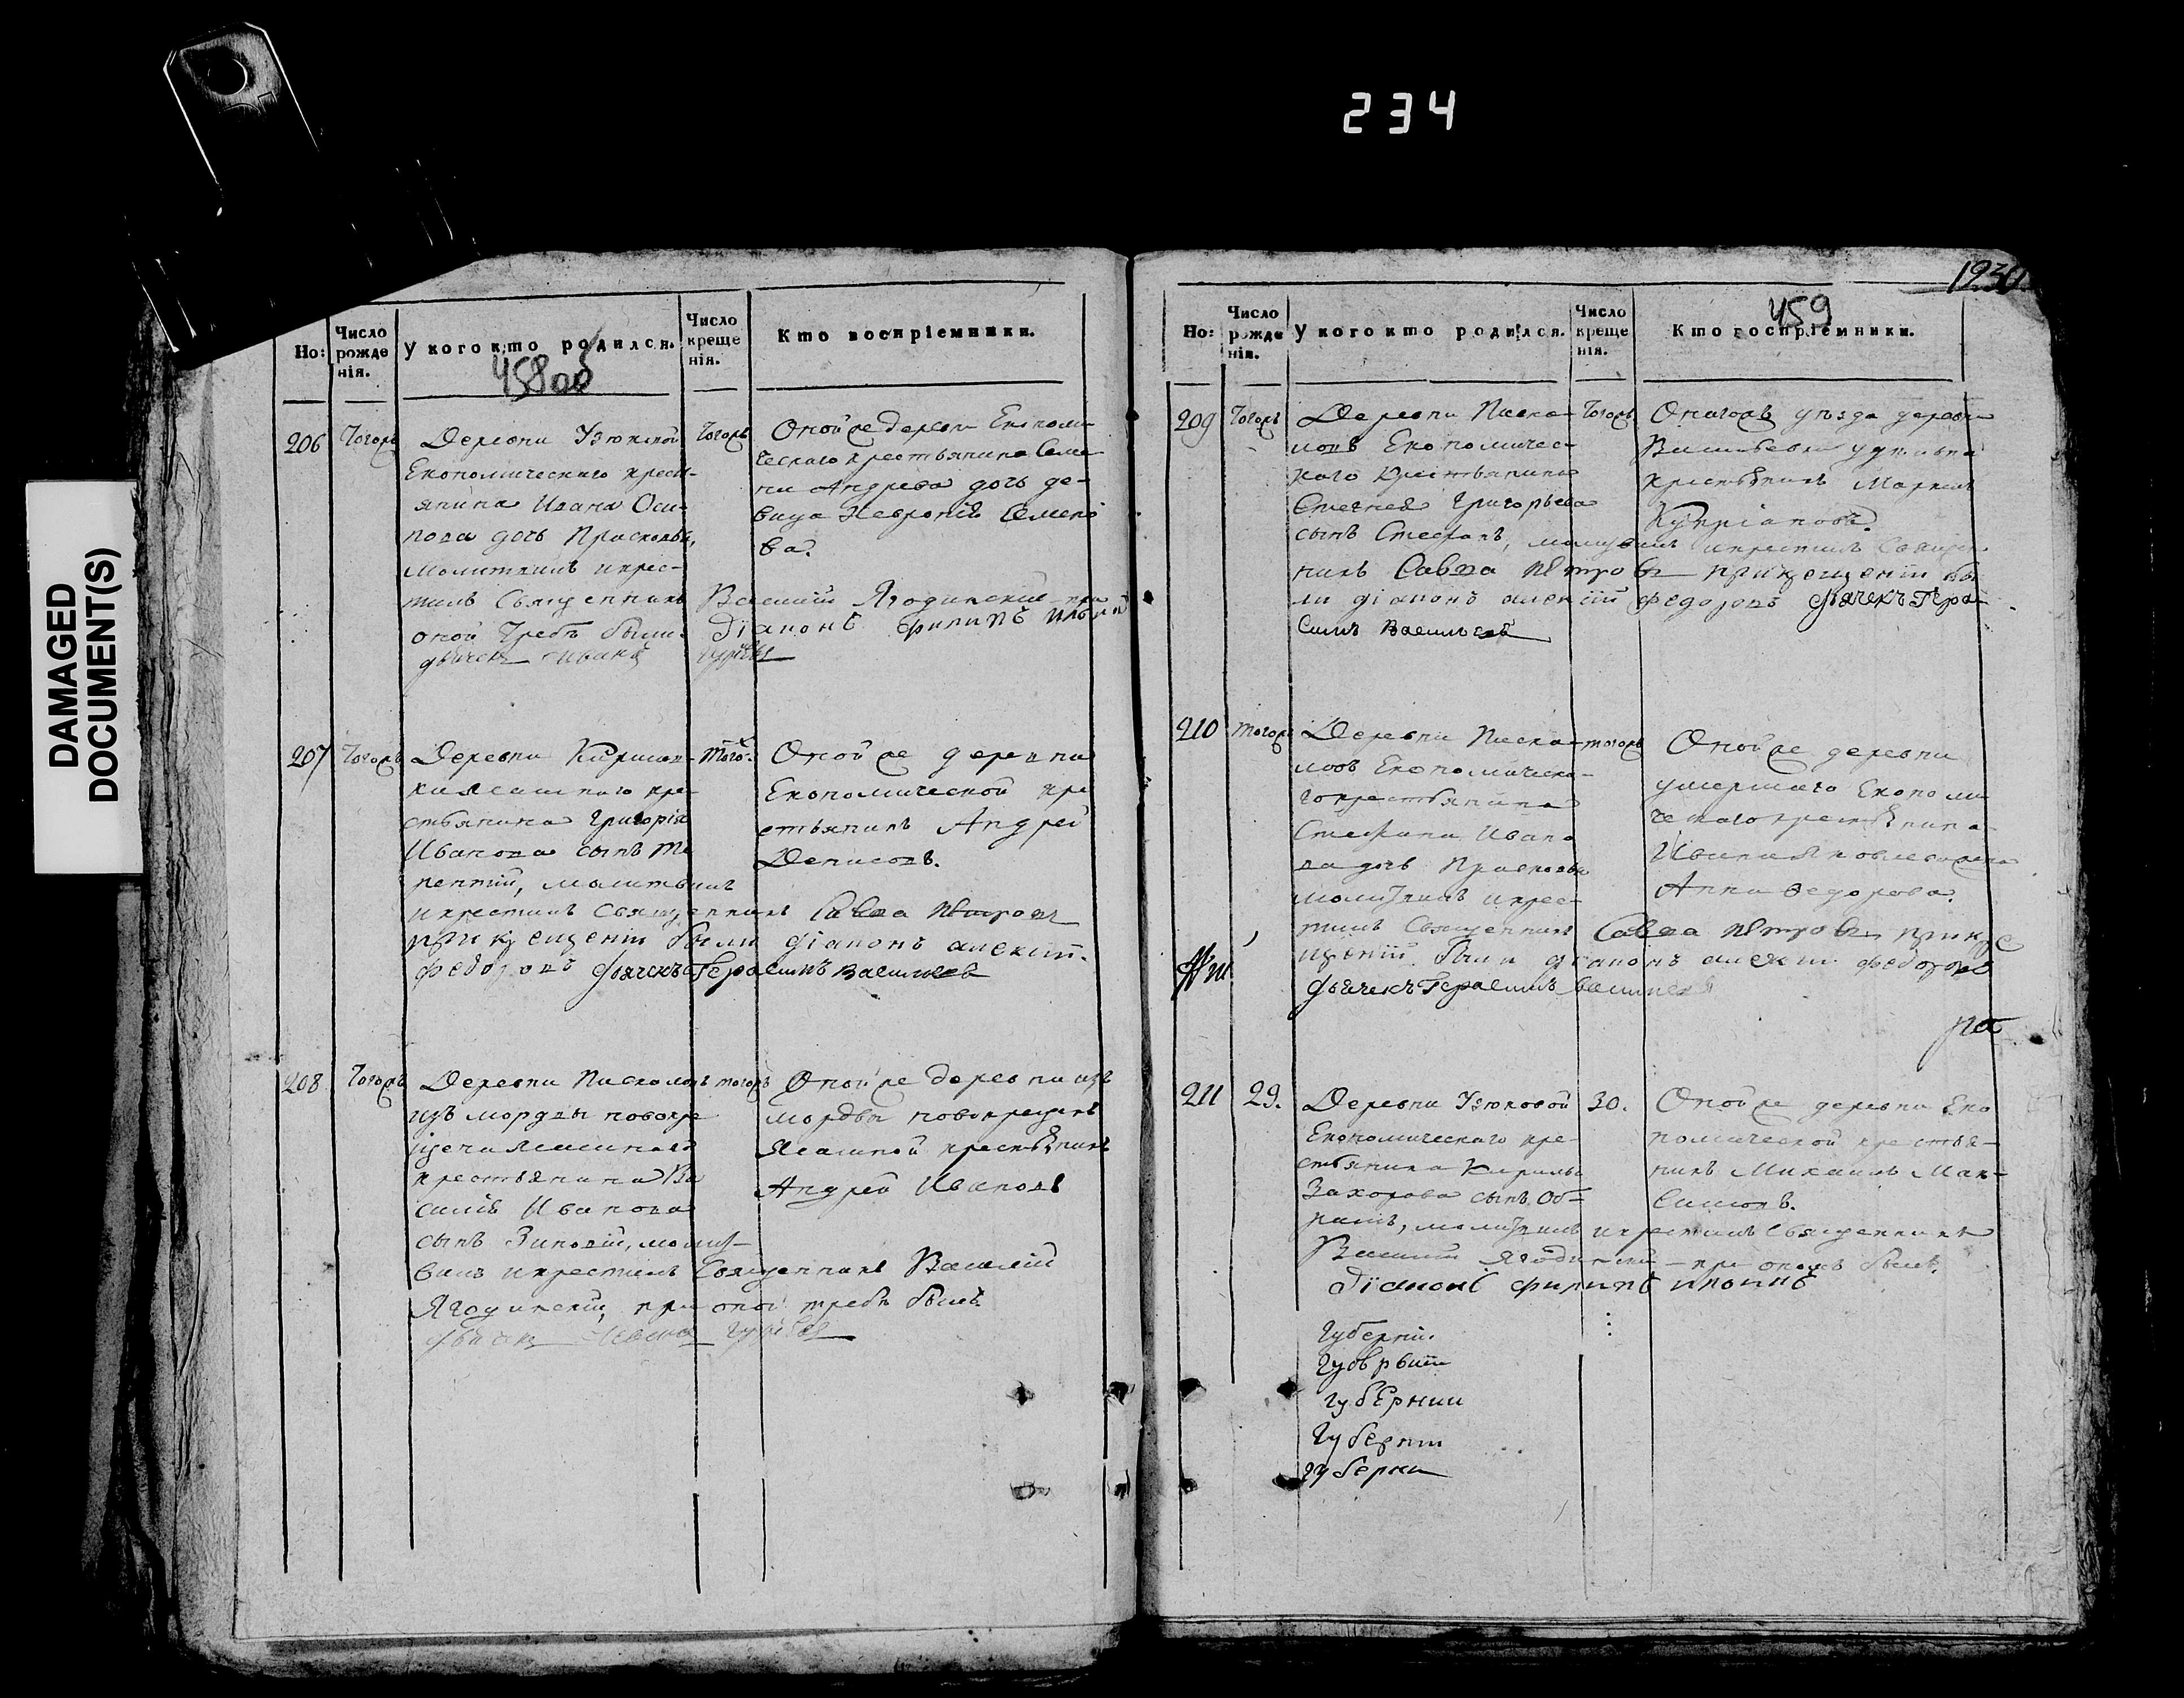 234
DAMAGED
DOCUMENT(S)
Но:
Число рожденія.
У кого кто родился.
Число крещенія.
Кто воспріемники.
458 об
206
Тогожъ
Деревни Узюковой
Економическаго крест-
янина Ивана Оси-
пова дочь Прасковья,
молитвилъ икрес-
тилъ Священникъ Василий Ягодинский при
оной требѣ были діаконъ Филипъ Ильинъ
дьячекъ Иванъ Гурьевъ
Тогожъ
Оной же деревни Економи-
ческаго крестьянина Семе-
на Андреева дочь де-
вица Хеврония Семено
ва.
207
Тогожъ
Деревни Кирилов-
ки ясашнаго кре-
стьянина Григорія
Иванова сынъ Те-
рентий, молитвилъ
икрестилъ Священникъ Савва Петровъ
при крещеніи были діаконъ алексій
федоровъ дьячекъ Герасимъ Васильевъ
Того ж
Оной же деревни
Економической кре
стьянинъ Андрей
Денисовъ.
208
Тогожъ
Деревни Пискаловъ
изъ мордвы новокре
щена ясашнаго
крестьянина Ва
силія Иванова
сынъ Зиновій, молит-
вилъ икрестилъ Священникъ Василій
Ягодинский, при оной требѣ былъ
дьячекъ Иванъ Гурьевъ
тогожъ
Оной же деревни изъ
мордвы новокрещенъ
Ясашной крестьянинъ
Андрей Ивановъ
1230
459
Но:
Число рожденія.
У кого кто родился.
Число крещенія.
Кто воспріемники.
209
Тогожъ
Деревни Писка-
ловъ Економичес-
каго Крестьянина
Евгения Григорьева
сынъ Стефанъ, молитвилъ икрестилъ Священ-
никъ Савва Петровъ при крещеніи бы
ли діаконъ алексій федоровъ дьячекъ Гера
симъ Васильевъ
Тогожъ
Оногожъ уезда деревни
Васильевки удельной
крестьянинъ Маркелъ
Купріановъ.
210
тогожъ
Деревни Писка-
ловъ Економическа-
го крестьянина
Стефана Ивано
ва дочь Прасковья
молитвилъ икрес-
тилъ Священникъ Савва Петровъ при кре
щеніи были діаконъ алексій федоровъ
дьячекъ Герасимъ Васильевъ
тогожъ
Оной же деревни
умершаго Економи
ческаго крестьянина
Ивана Яковлева жена
Анна Федорова.
211
29.
Деревни Узюковой
Економическаго кре-
стьянина Кирилы
Захорова сынъ
молитвилъ икрестилъ Священникъ
Василий Ягодинский при ономъ былъ
діаконъ филипъ ильинъ
30.
Оной же деревни Еко
номической крестья-
нинъ Михаилъ Мак-
симовъ.
Губерніи.
губЕрнии
Губернии
губерни